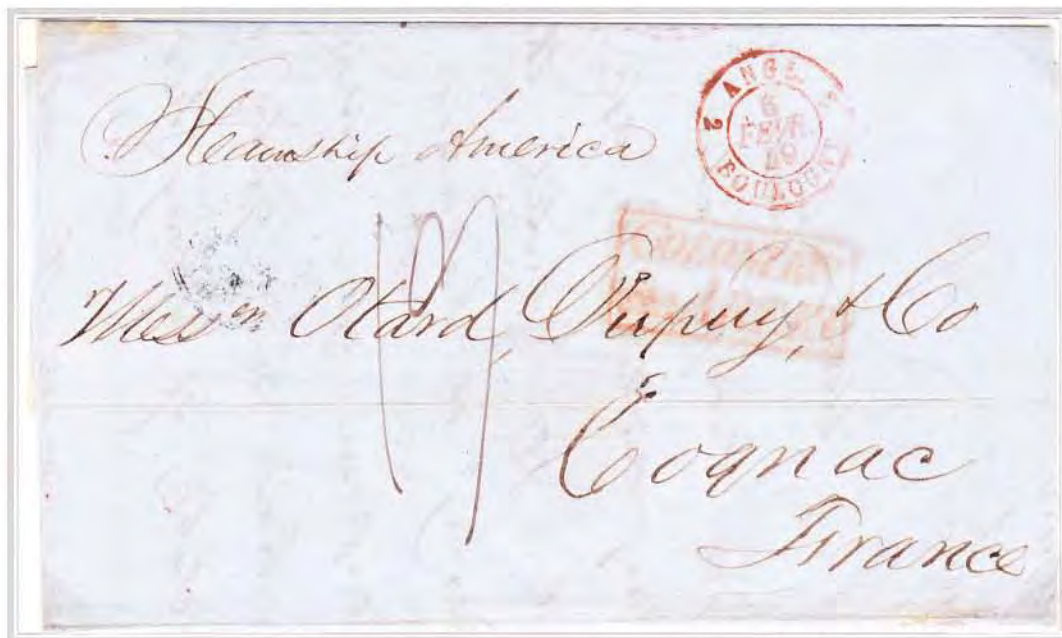 Steamship America
2 ANGL. 2
6
FEVR.
49
BOULOGNE
COLONIES
Messrs Otard, Dupuy, & Co
Cognac
France